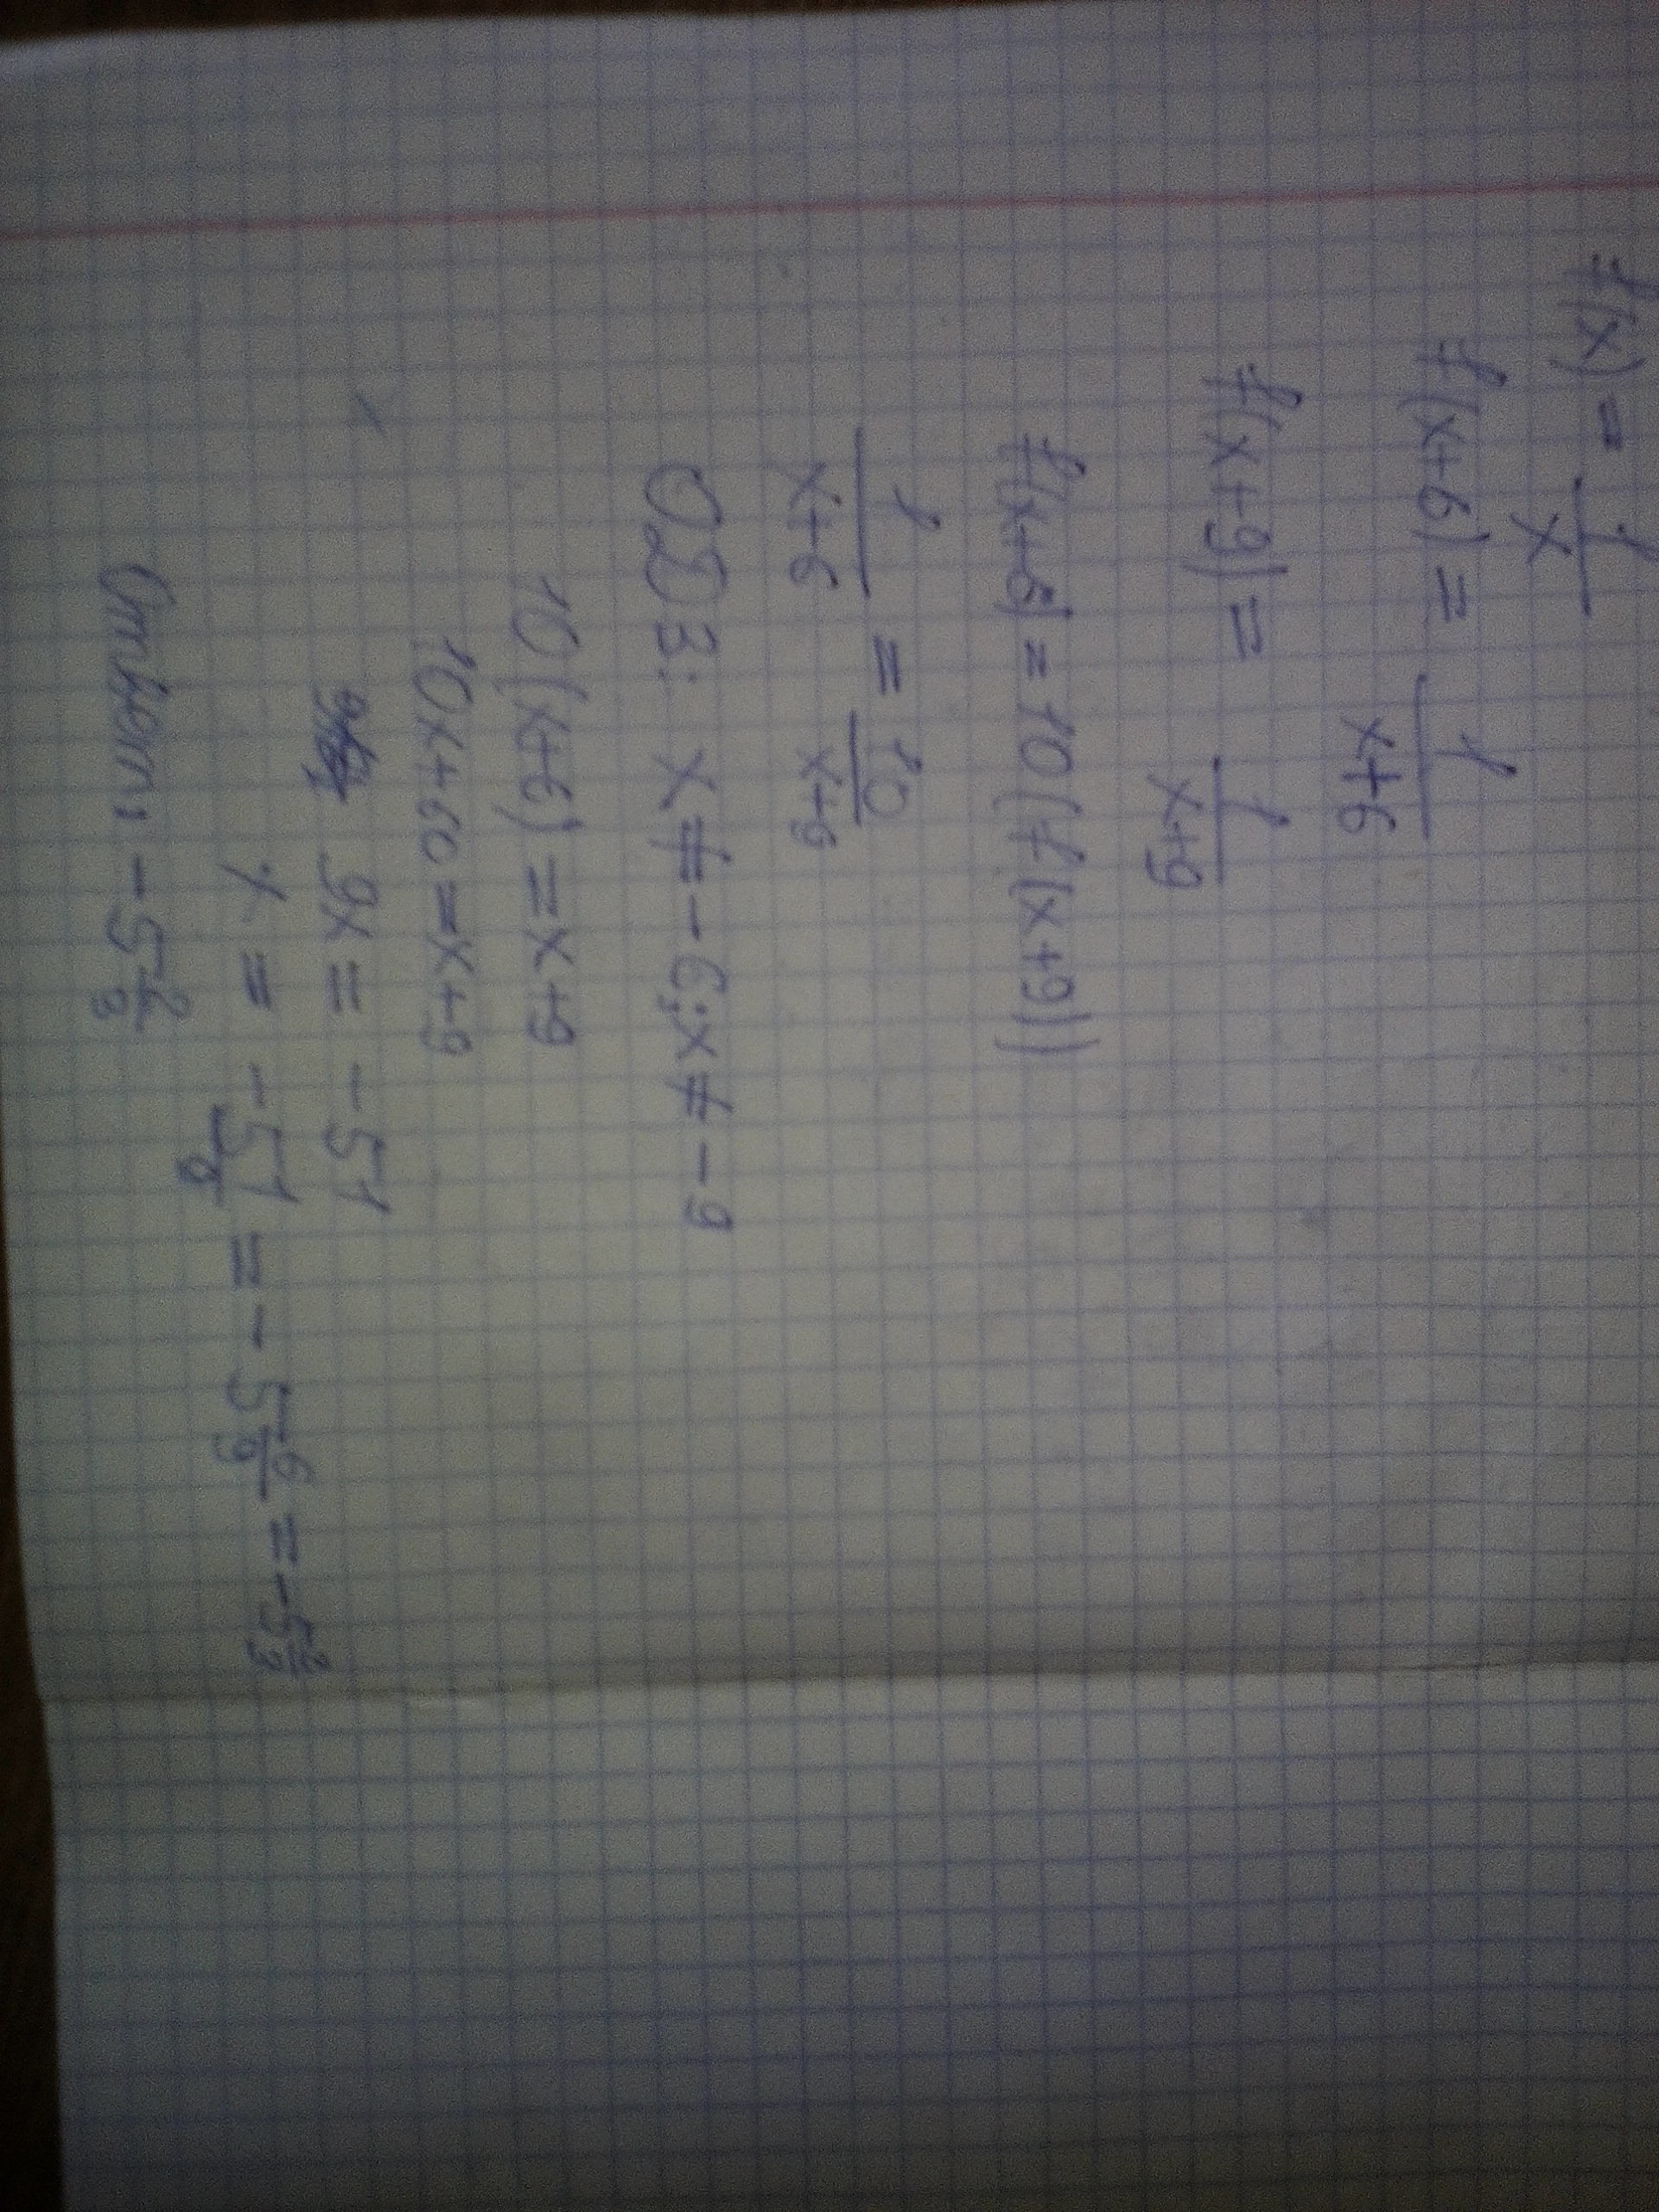 f(x) = 1/x
f(x+6) = 1/(x+6)
f(x+9) = 1/(x+9)
f(x+6) = 10(f(x+9))
1/(x+6) = 10/(x+9)
ОДЗ: x ≠ -6; x ≠ -9
10(x+6) = x+9
10x+60 = x+9
9x = -51
x = -51/9 = -5 6/9 = -5 2/3
Ответ: -5 2/3